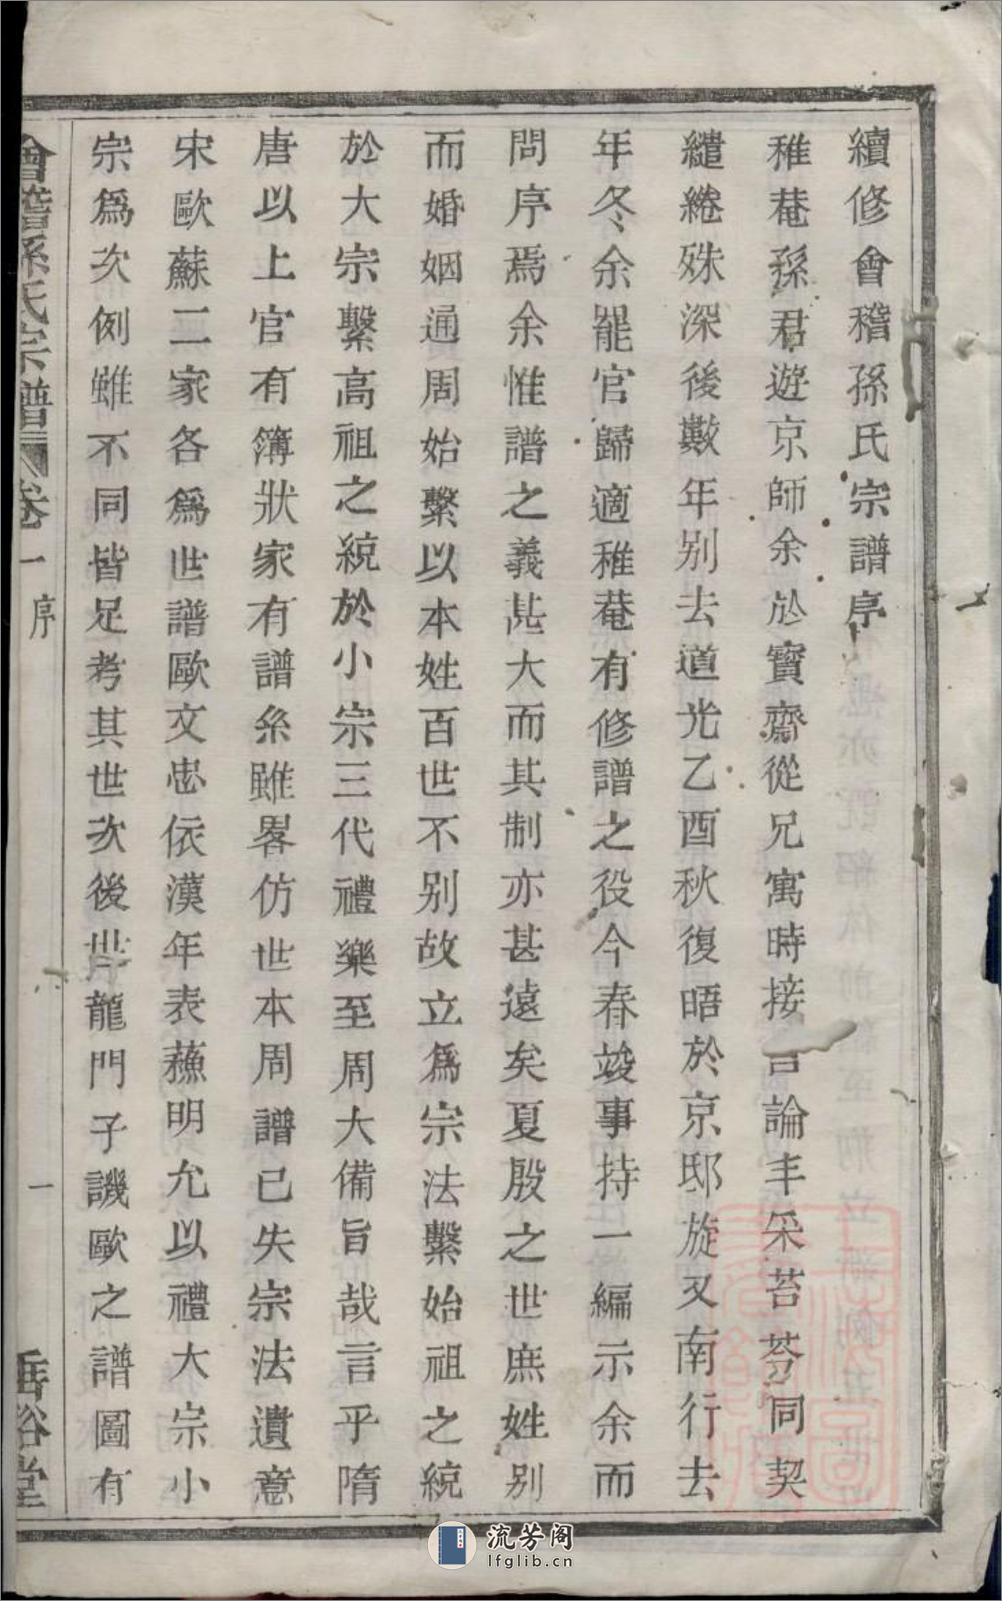 續修會稽孫氏宗譜序
稚菴孫君遊京師余於寶齋從兄寓時接言論丰采苔芩同契
繾綣殊深後數年别去道光乙酉秋復晤於京邸旋又南行去
年冬余罷官歸適稚菴有修譜之役今春竣事持一編示余而
問序焉余惟譜之義甚大而其制亦甚遠矣夏殷之世庶姓别
而婚姻通周始繫以本姓百世不别故立爲宗法繫始祖之統
於大宗繫高祖之統於小宗三代禮樂至周大備旨哉言乎隋
唐以上官有簿狀家有譜糸雖畧仿世本周譜已失宗法遺意
宋歐蘇二家各爲世譜歐文忠依漢年表蘓明允以禮大宗小
宗爲次例雖不同皆足考其世次後世龍門子譏歐之譜圖有
會稽孫氏宗譜 卷一 序 一 垂裕堂
流芳阁
lfglib.cn